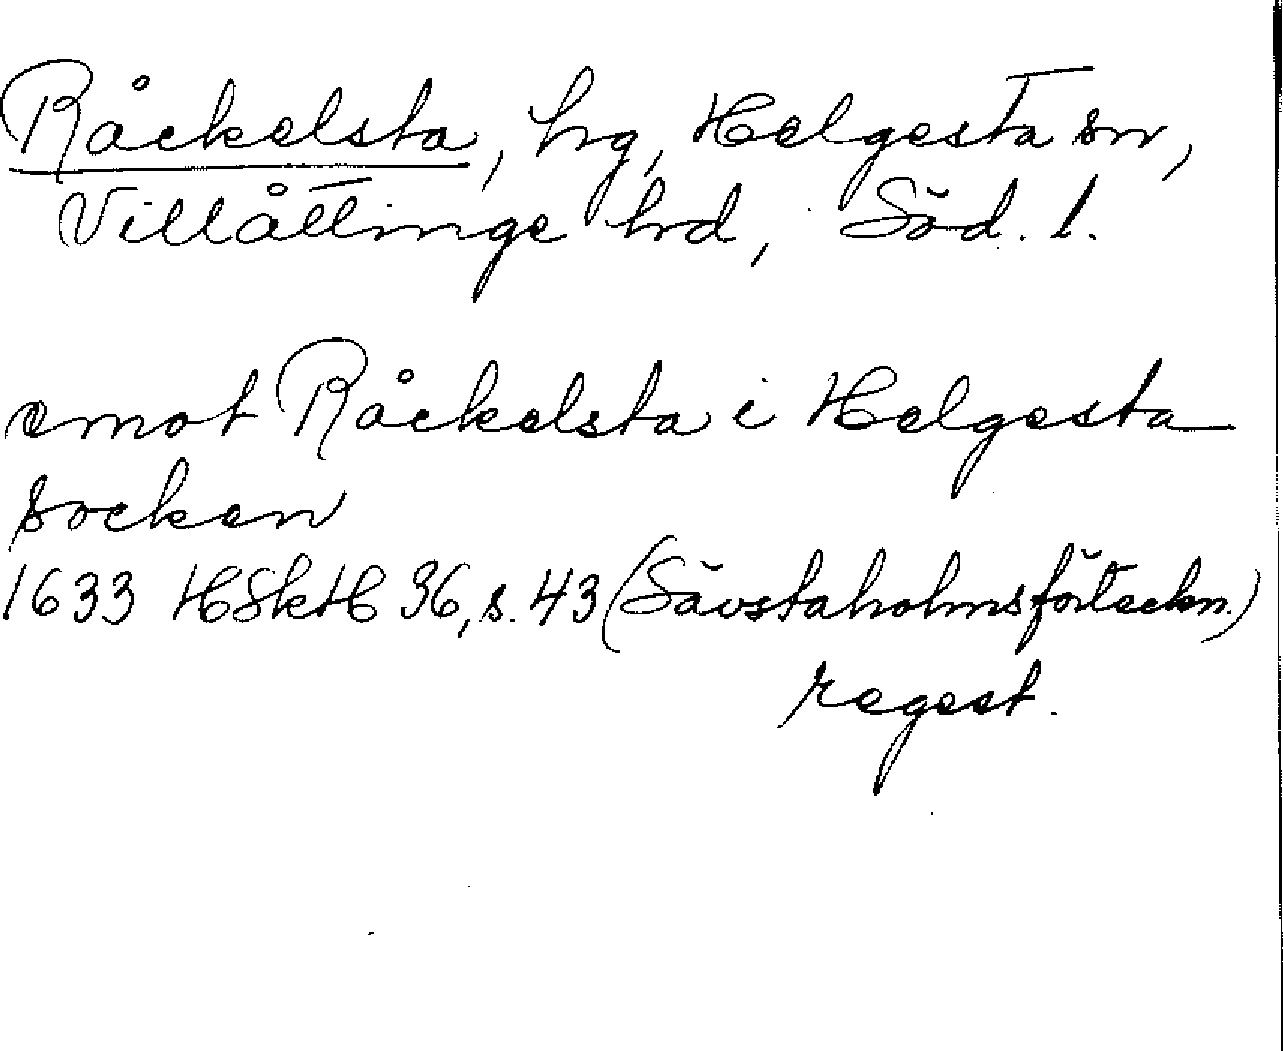 Råckelsta, hg, Helgesta sn,
Villåttinge hd, Söd. l.
emot Råckelsta i Helgesta
socken
1633 HSkH 36, s. 43 (Sävstaholmsförteckn.)
regest.